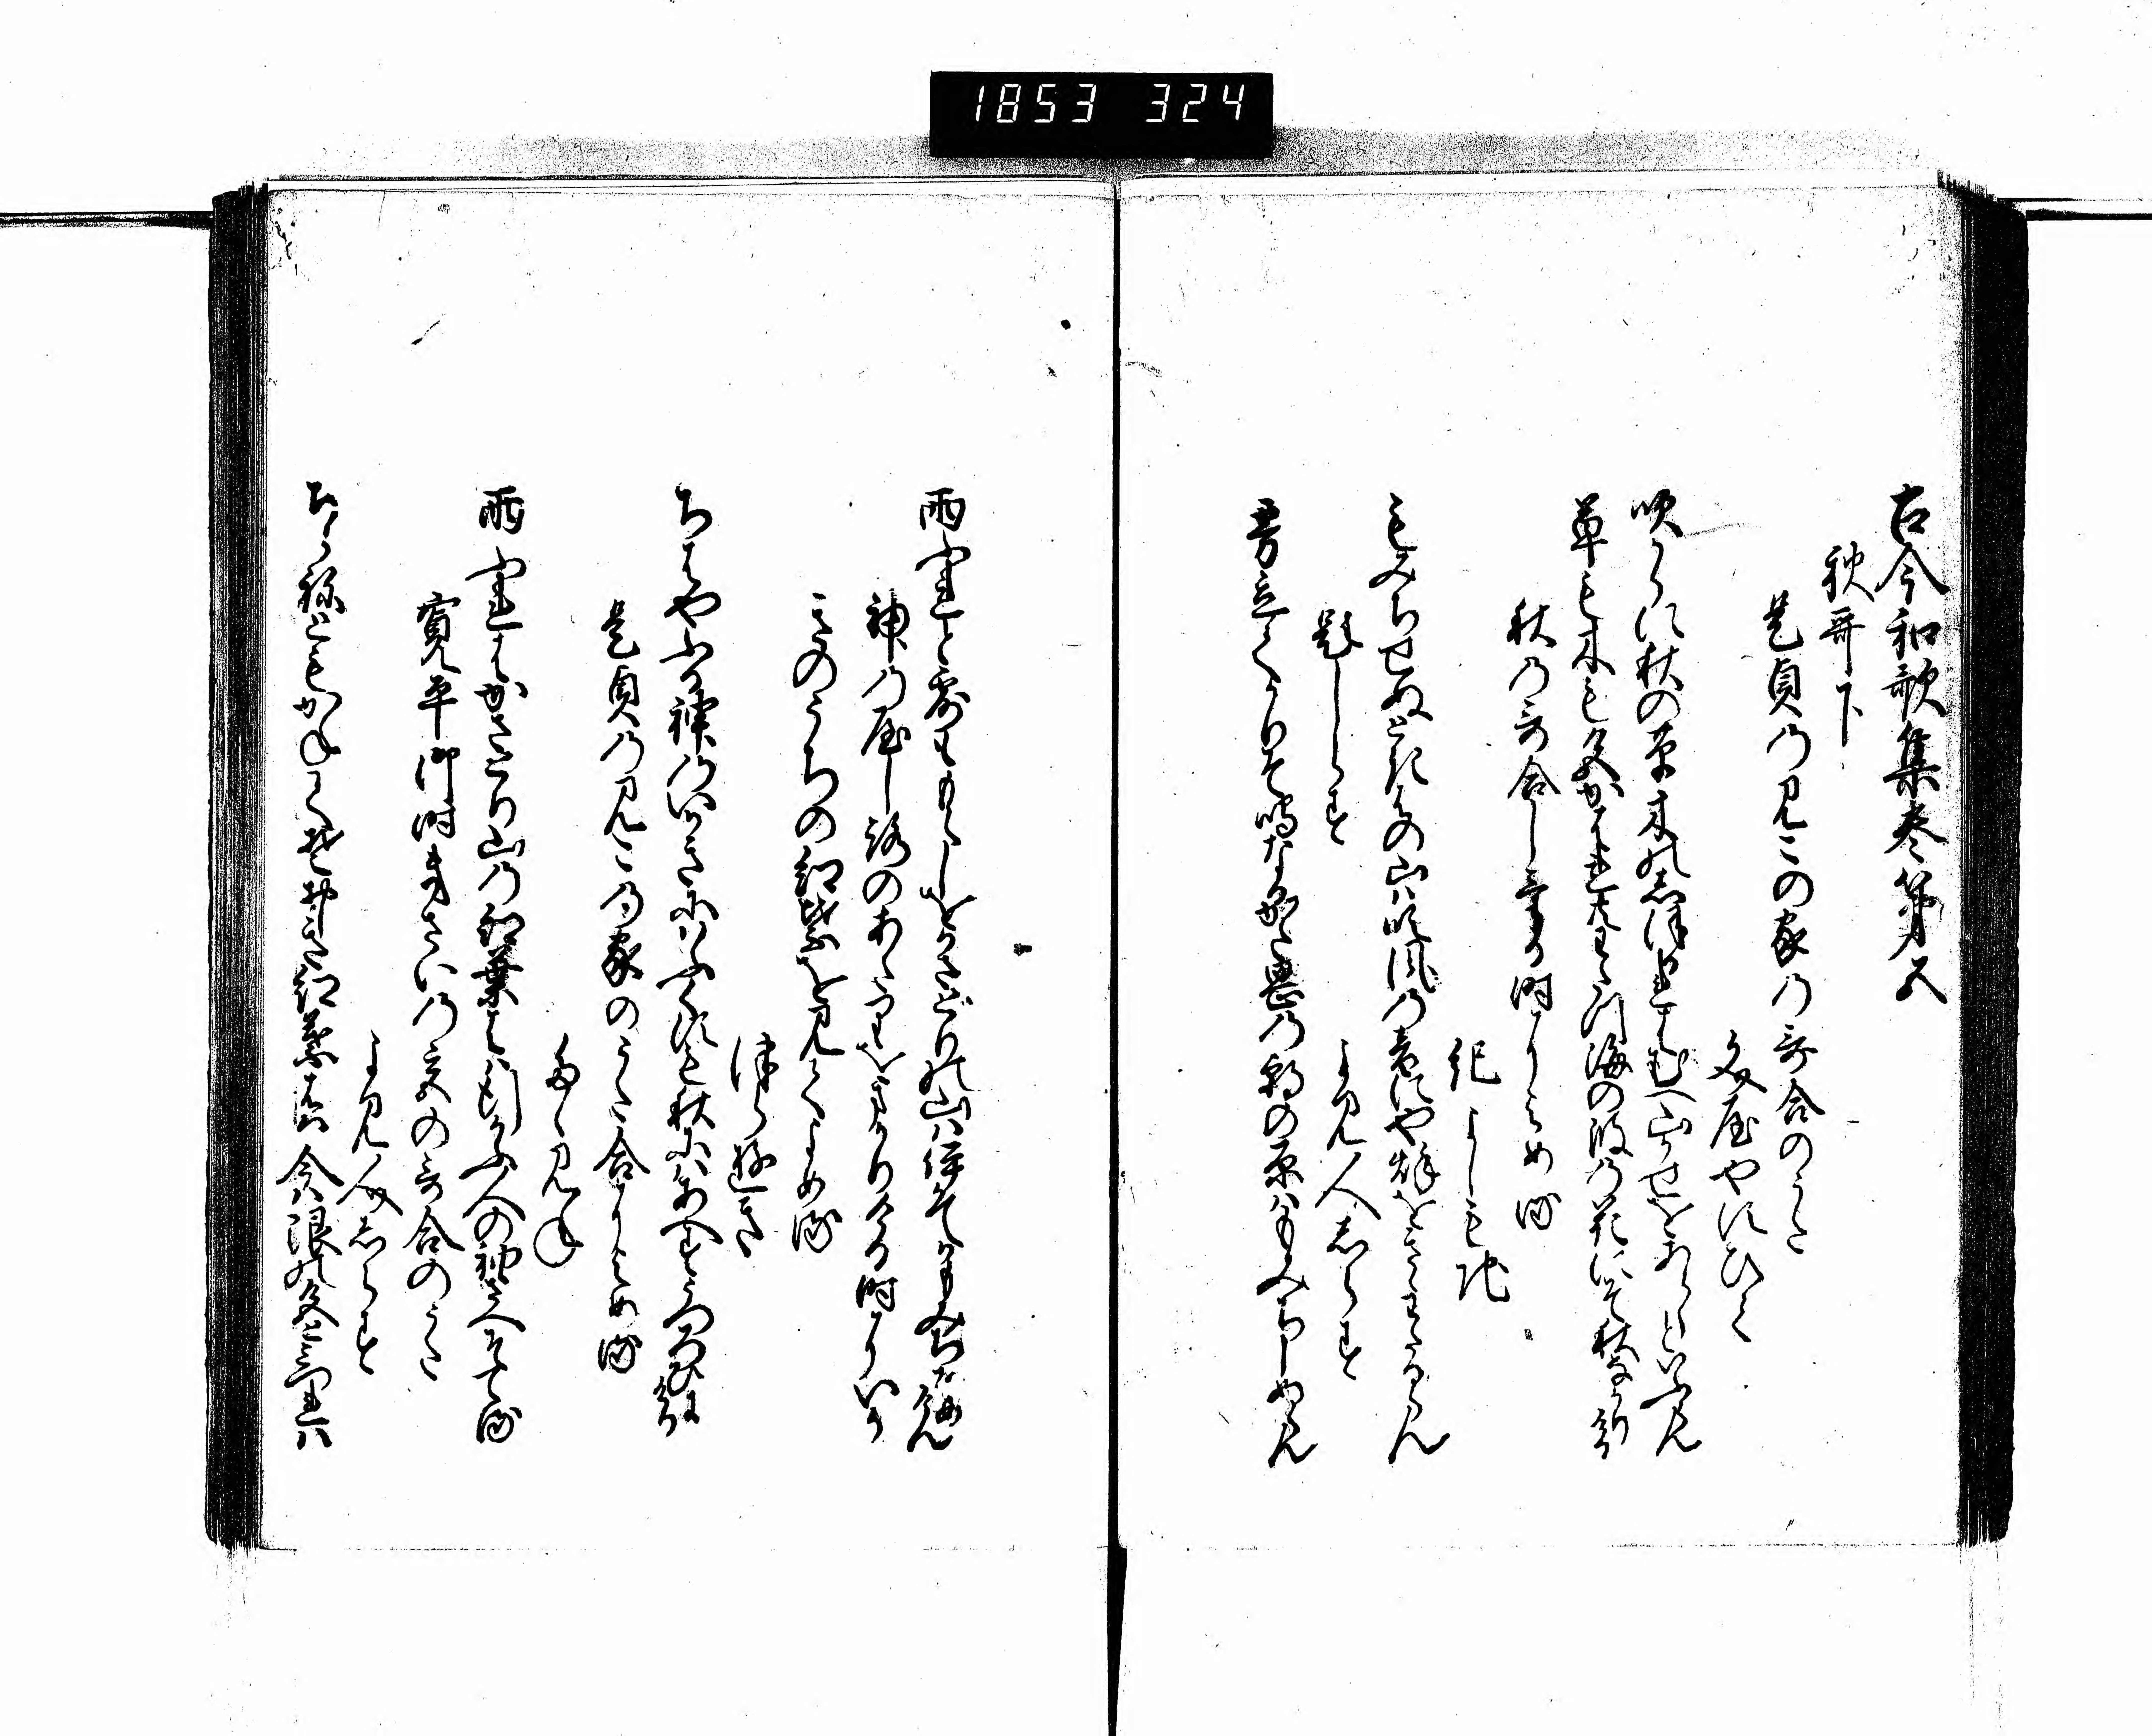 1853 324
古今和歌集巻第五
秋哥下
是貞乃見この家乃哥合のうた
文屋やすひて
吹からに秋の草木のしほるれはむへ山かせをあらしといふらん
草も木も色かはれともわたつ海の波乃花にそ秋なかりける
秋乃哥合しける時によめる
紀よしもち
もみちせぬときはの山は吹風の音にや秋をきゝわたるらん
題しらす
よみ人しらす
雰立て鳴なる乃朝の原はもみちしぬらん
雨ふれと露ももらしをかさとりの山はいかてかもみちそめけん
神乃屋しろのあたりをまかりける時にいか
きのうちの紅葉を見てよめる
つらゆき
ちはやふる神のいかきにはふくすも秋にはあへすうつろひにけり
是貞乃見この家のうた合によめる
たゝみね
雨ふれはかさとり山の紅葉はは行かふ人の袖さへそてる
寛平御時きさいの宮の哥合のうた
よみ人しらす
ちらねともかねてそおしき紅葉は今は限の色とみつれは